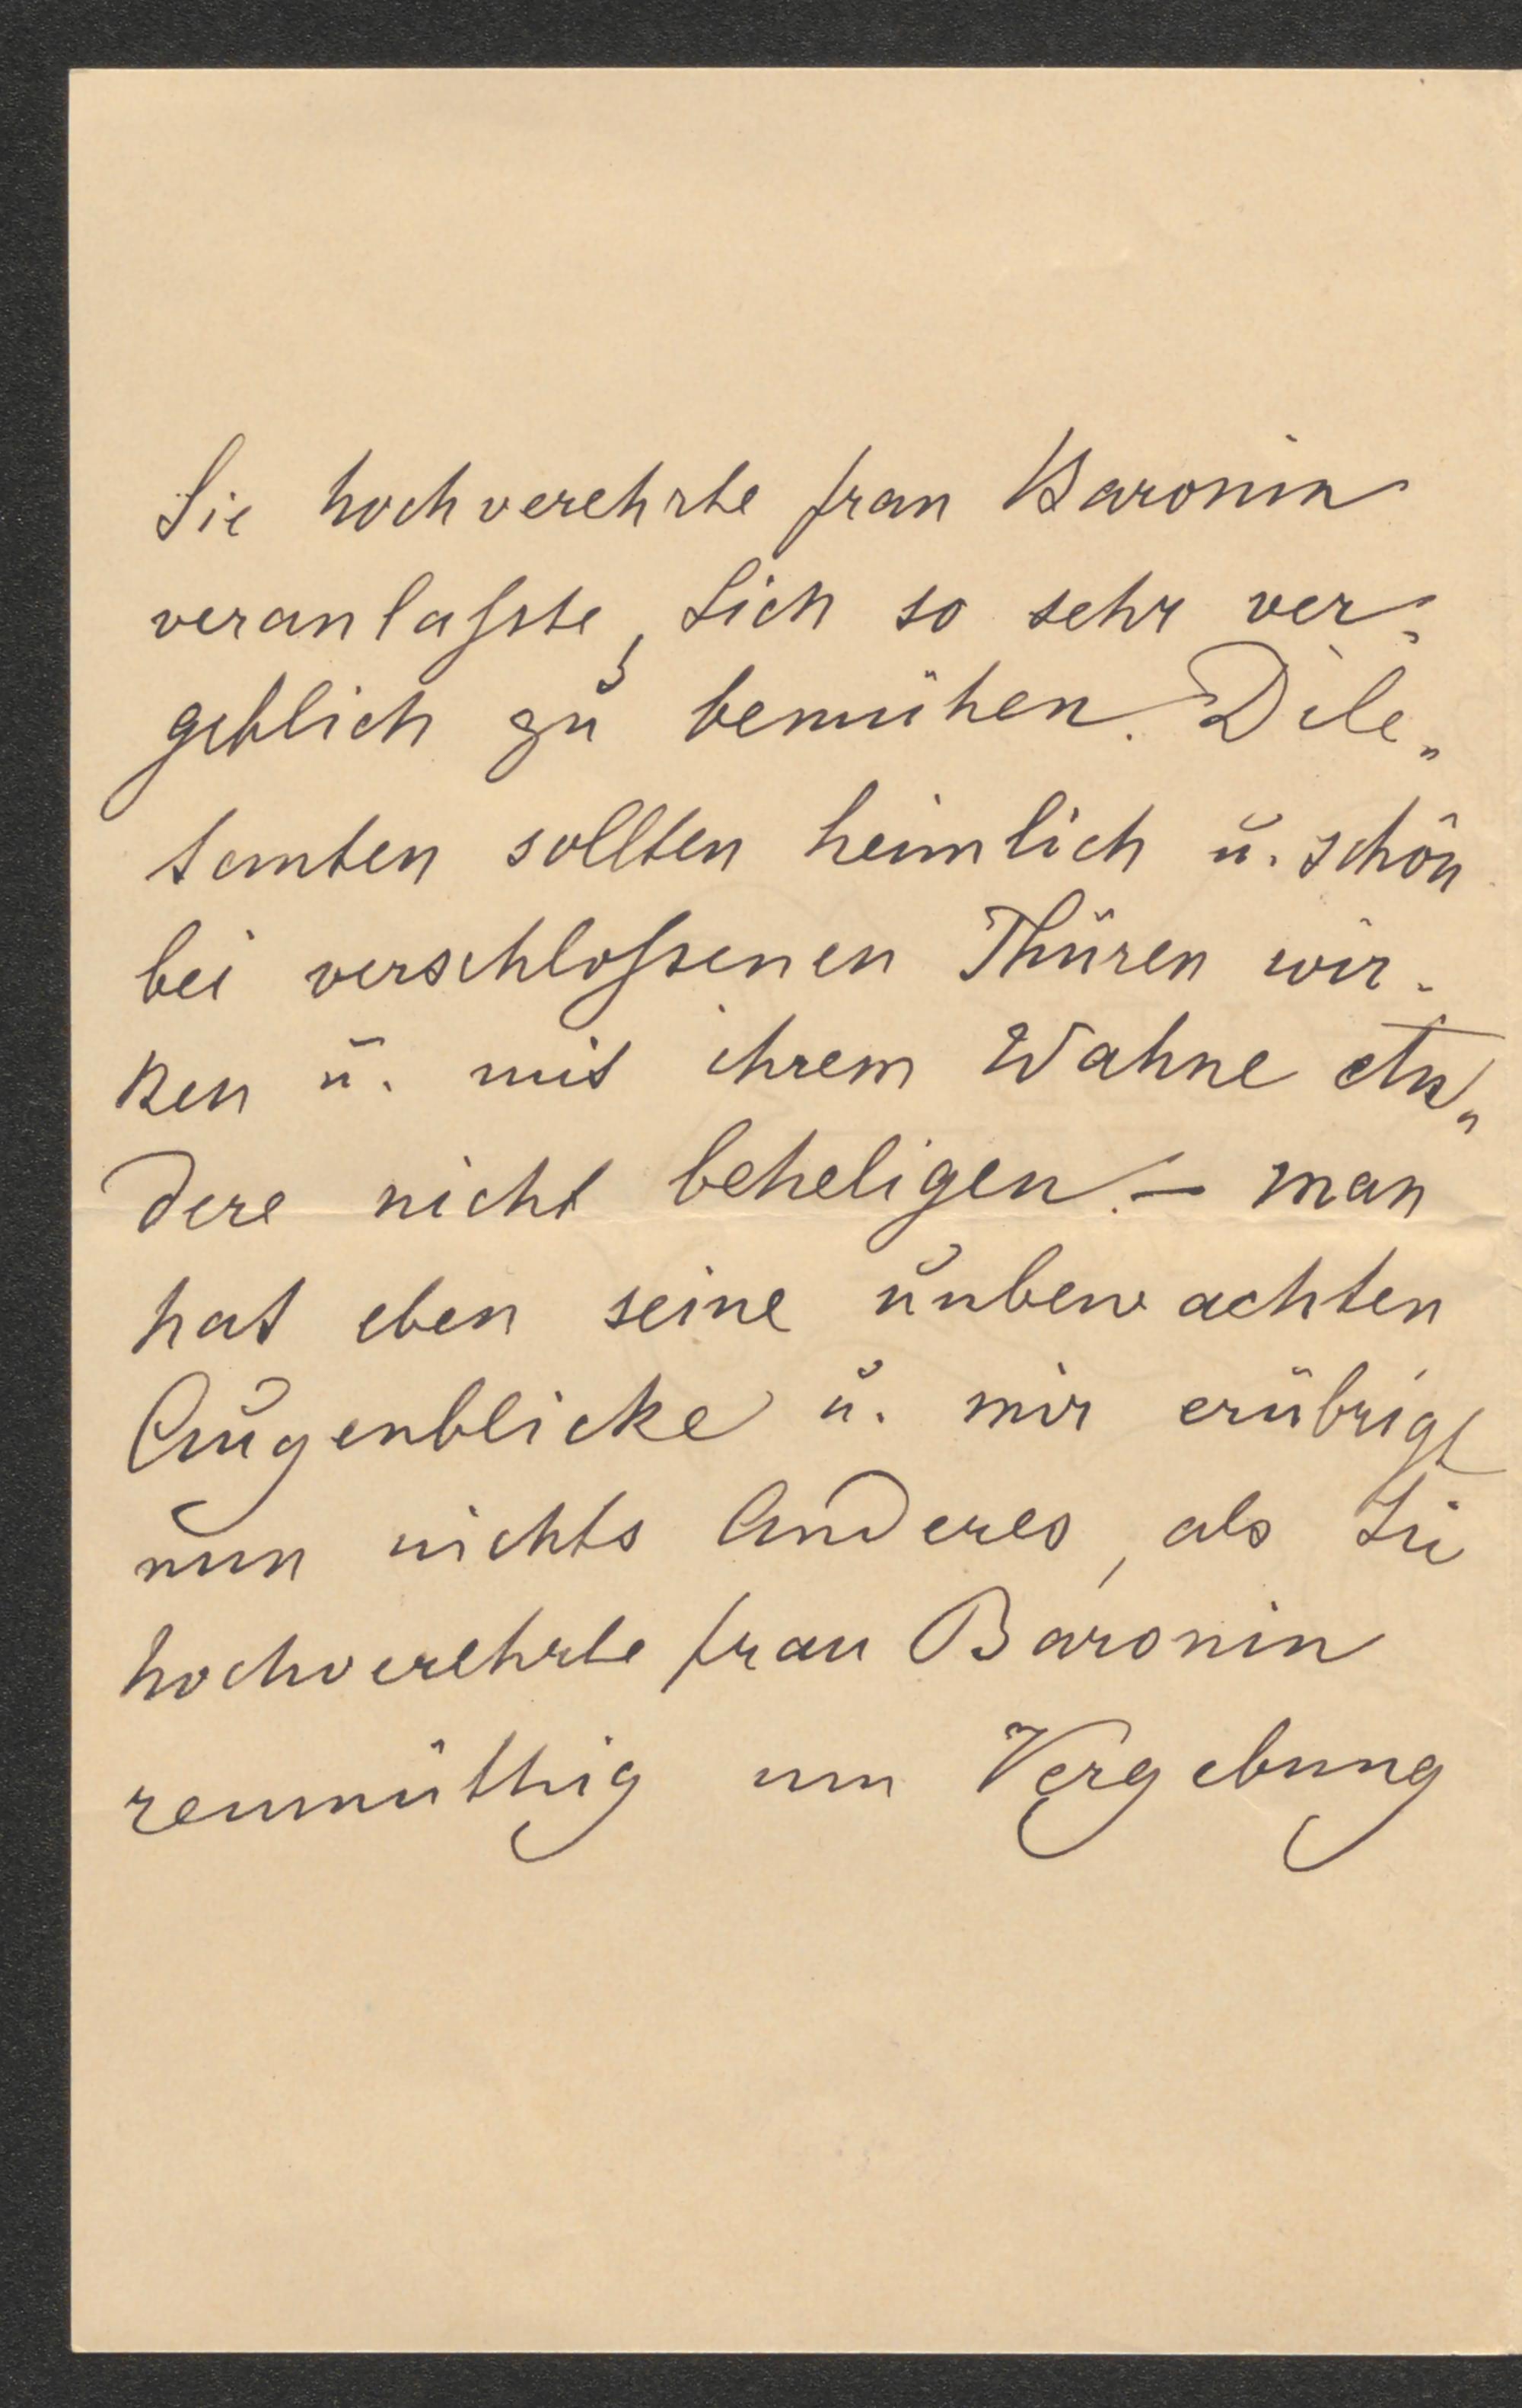 Sie hochverehrte Frau Baronin
veranlaßte, Sich so sehr ver-
geblich zu bemühen. Dile„
tanten sollten heimlich u. schön
bei verschloßenen Thüren wir-
ken u. mit ihrem Wahne An„
dere nicht beheligen. – man
hat eben seine unbewachten
Augenblicke u. mir erübrigt
nun nichts Anderes, als Sie
hochverehrte Frau Baronin
reumüthig um Vergebung